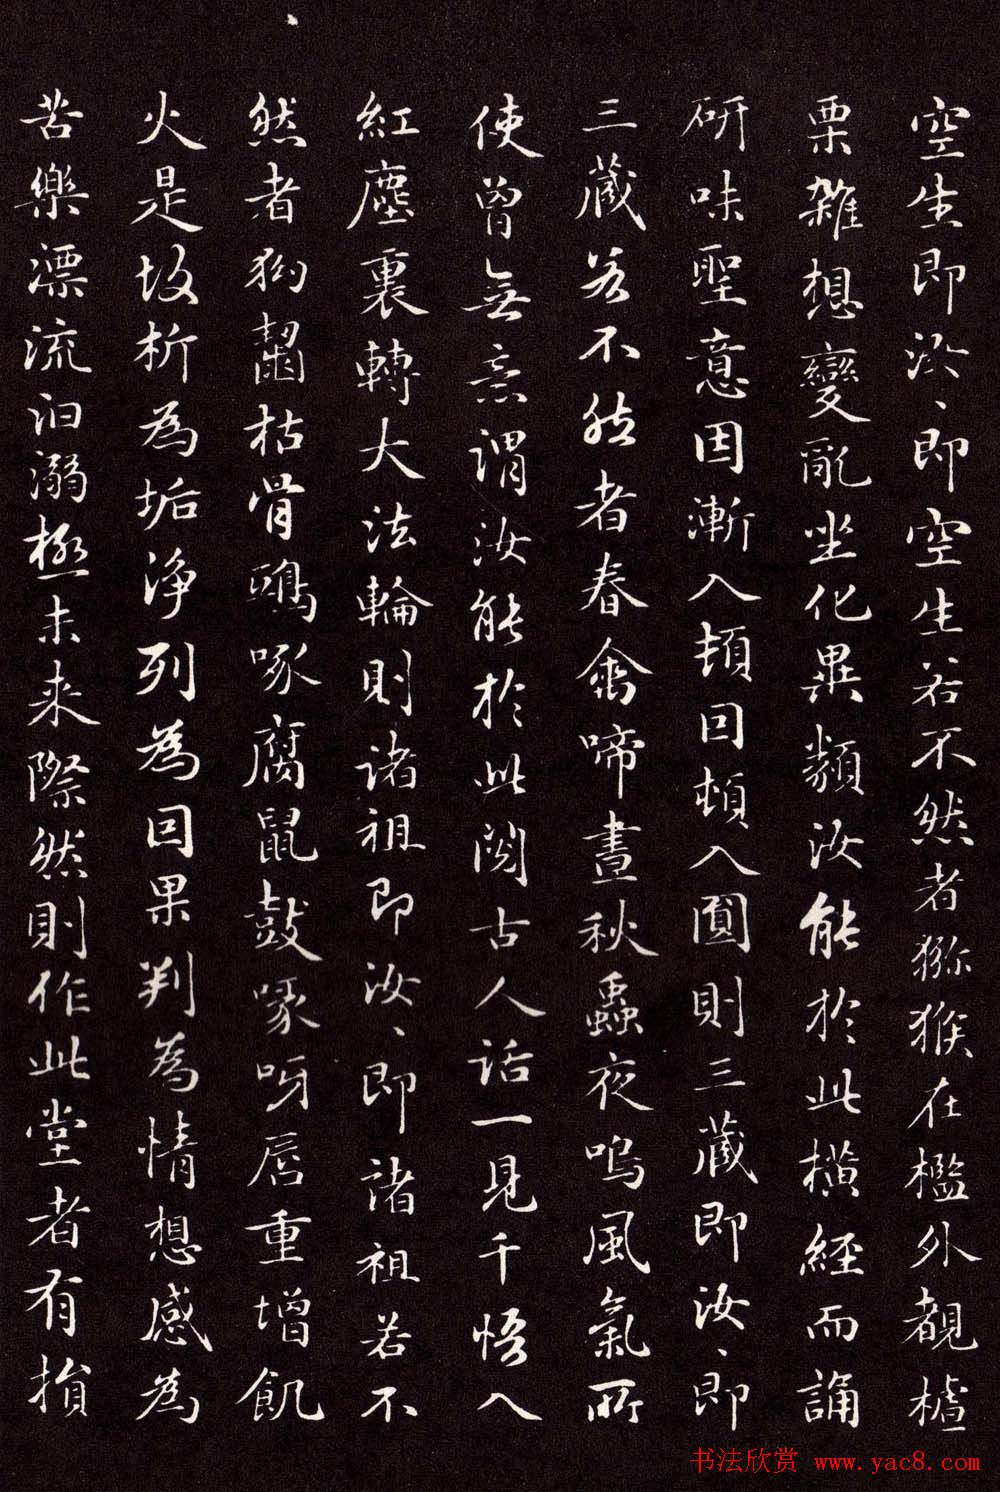 空生即汝、即空生若不然者獼猴在檻外覩樝
栗雜想變亂坐化異類汝能於此横經而誦
研味聖意因漸入頓因頓入圓則三藏即汝、即
三藏若不然者春禽啼晝秋蟲夜鳴風氣所
使曾無意謂汝能於此閱古人話一見千悟入
紅塵裏轉大法輪則諸祖即汝、即諸祖若不
然者狗齧枯骨鴟啄腐鼠鼓喙呀唇重增飢
火是故析為垢淨列為因果判為情想感為
苦樂漂流汩溺極未來際然則作此堂者有損
书法欣赏 www.yac8.com